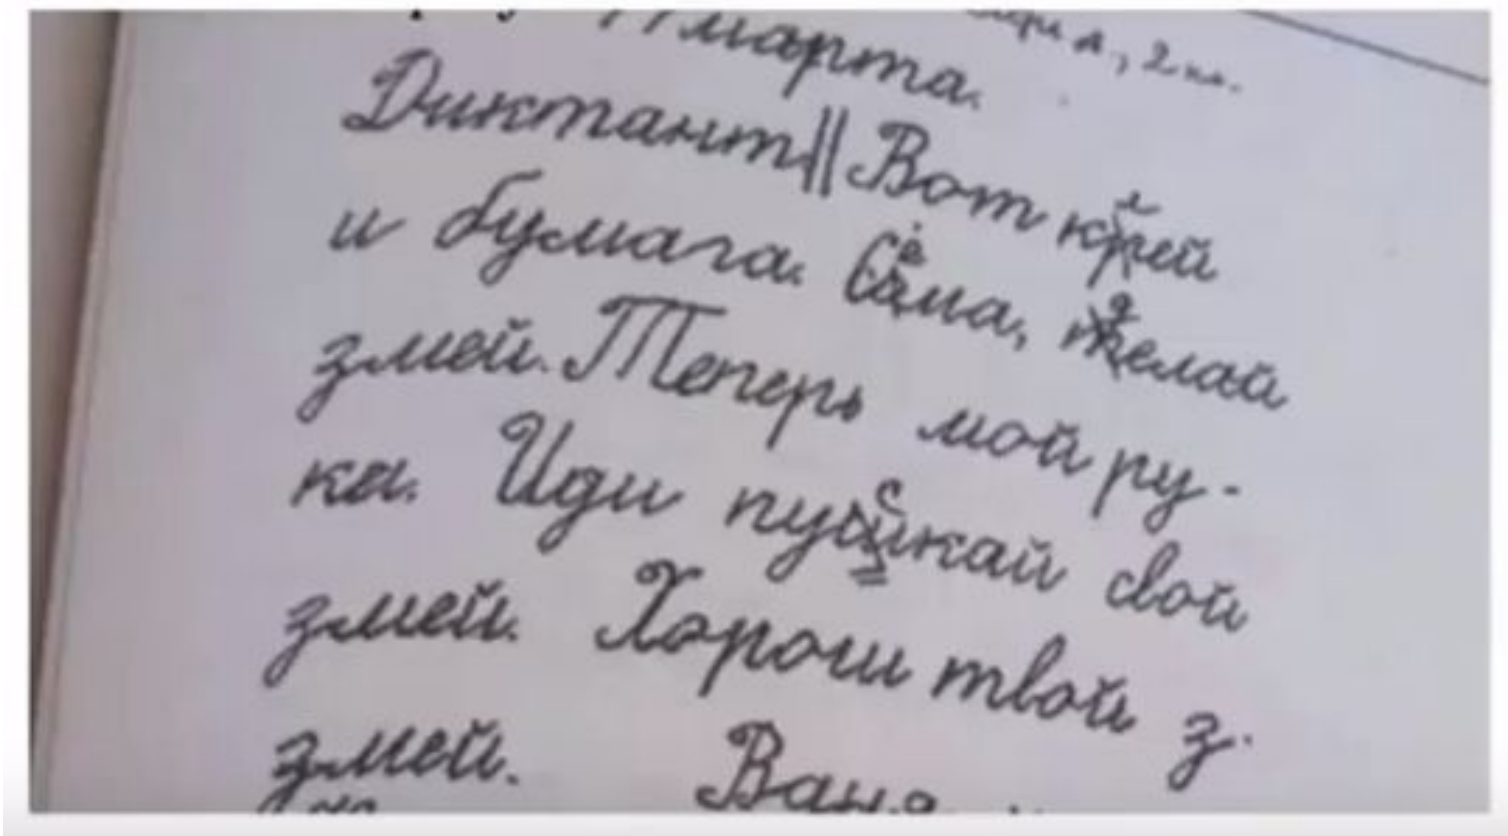 2 кл.
марта.
Диктант || Вот клей
и бумага. Сёма, делай
змей. Теперь мой ру-
ка. Иди пускай свой
змей. Хорош твой з.
змей. Ваня